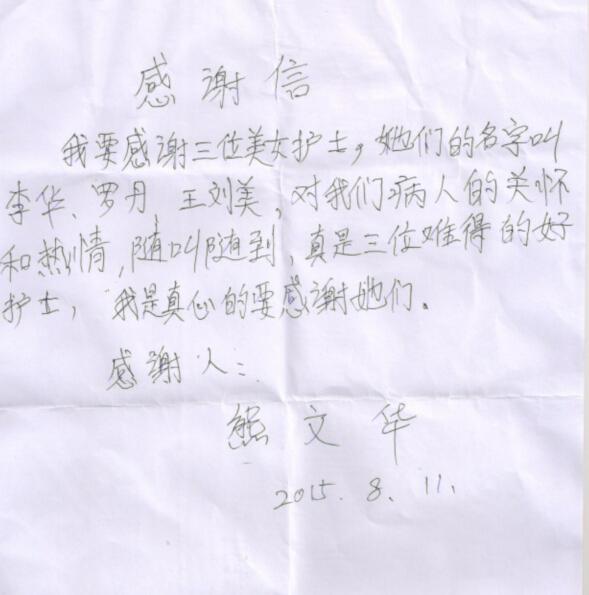 感谢信
我要感谢三位美女护士，她们的名字叫
李华、罗丹、王刘美，对我们病人的关怀
和热情，随叫随到，真是三位难得的好
护士，我是真心的要感谢她们。
感谢人：
熊文华
2015.8.11.